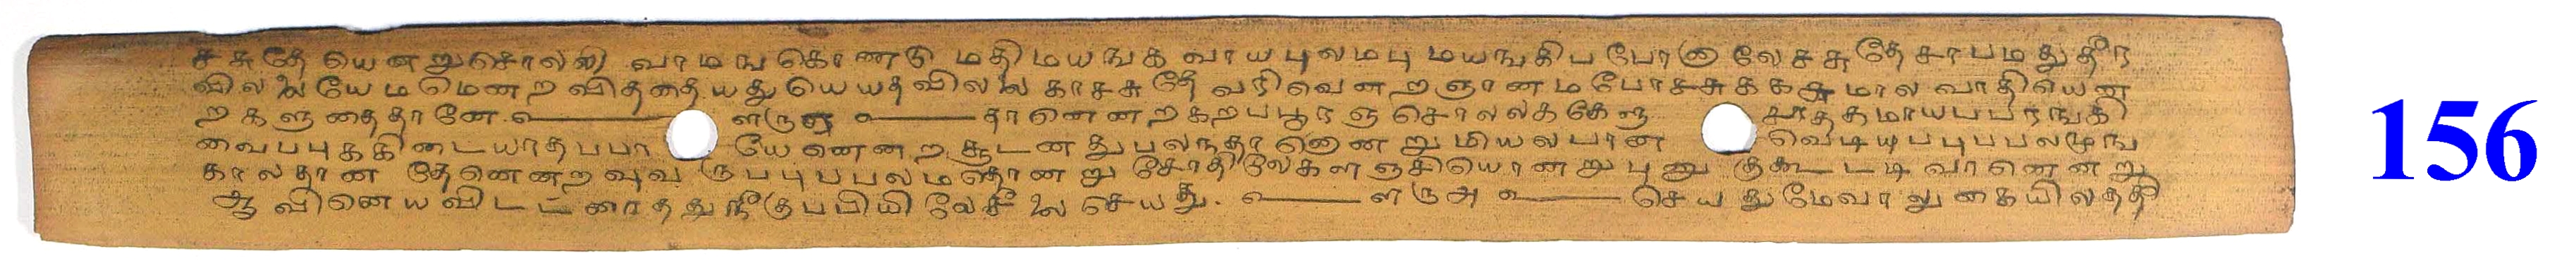 ச சுதே யென றுசொலலி வாமங கொணடு மதிமயஙக வாயபுலமபு மயஙகிப போகு லேசசுதே சாபமதுதீர
விலலை யேமமெனற விததை யது யெயதவிலலை காசசுதே வரிவெனற ஞானம போசசுகக சுமால வாதியென
றகளுதைதானே. ளருஎ தானெனற கறபபூரஞ சொலலக கேளு சுாததமாயபபரஙகி
வைபபுககிடையாதபபா யேனெனற சூடனதுபலநதானெனறுமியலபான வெடியுபபுபபலமூங
காலதான தேனெனற வுவ ருபபுபபலமதொனறு சோதிலேகளஞசியொனறுபுனுகுகூடடிவானெனறு
ஆவினெயவிடடனாததுநீகுபபியிலேசீலை செயது. ளருஅ செயதுமேவாலுகையிலததி
156